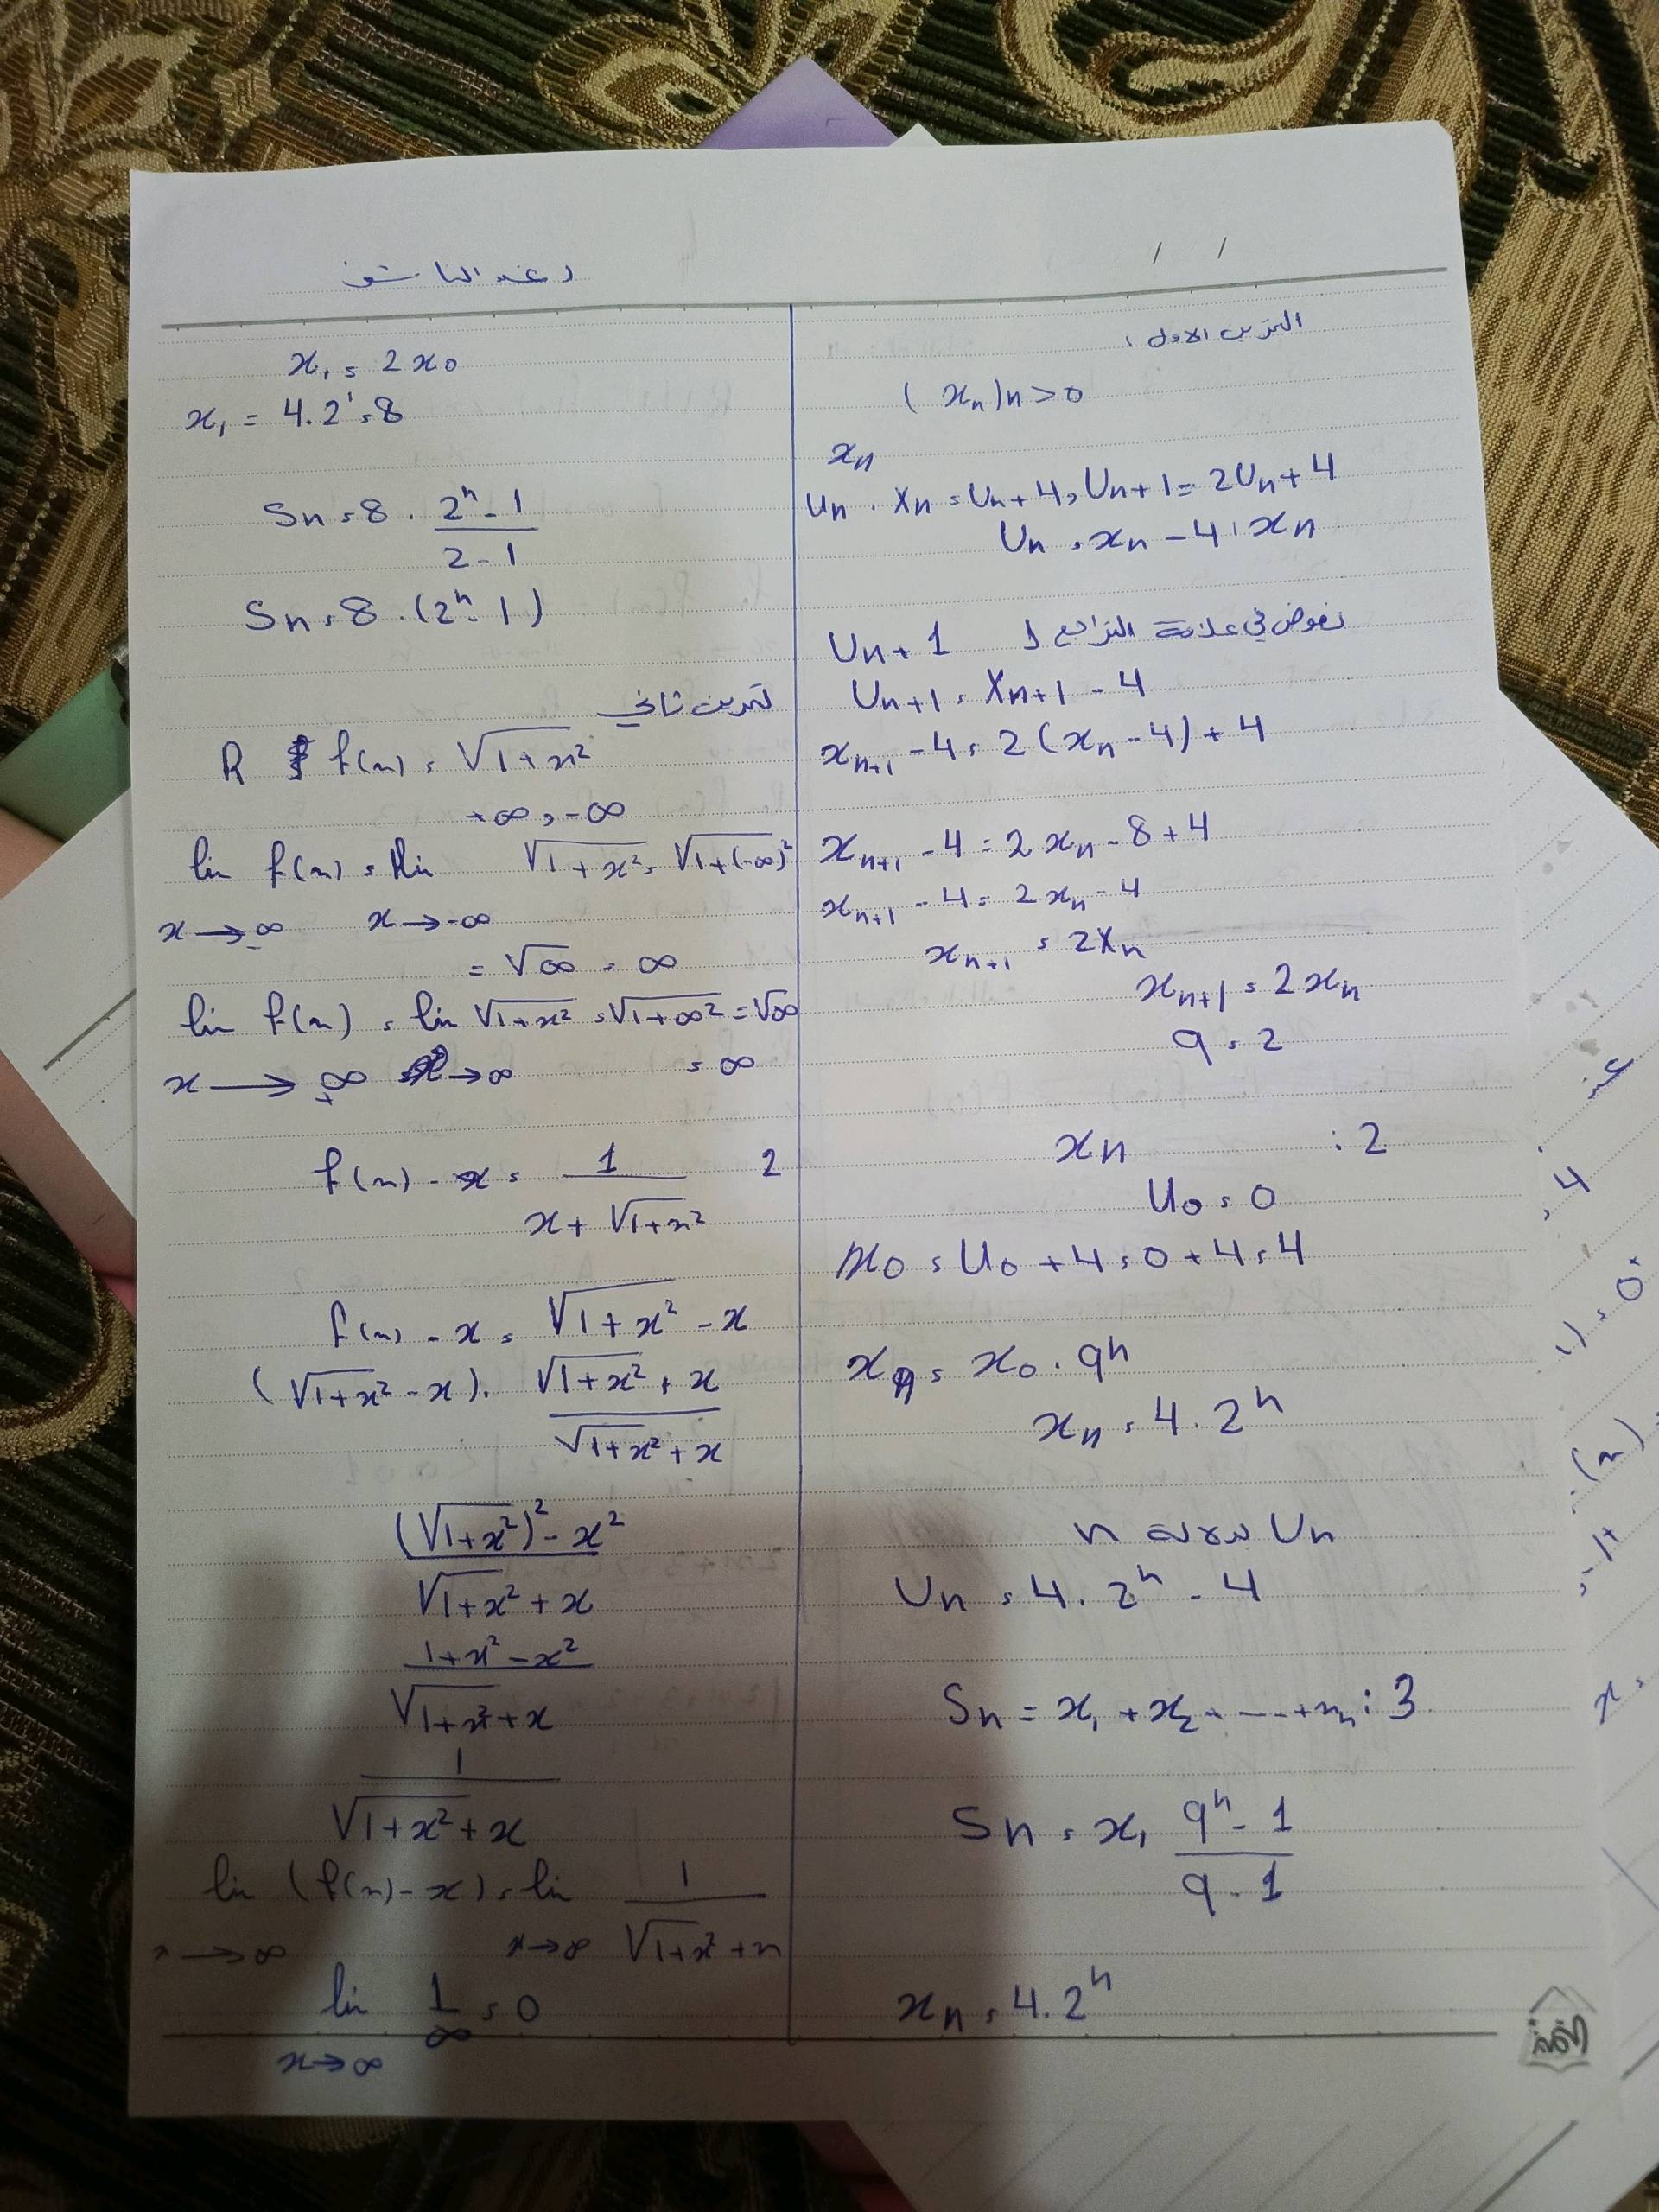 رغد الناشف
/ /
التمرين الاول :
(xn)n>0
xn
Un . Xn = Un + 4 , Un+1 = 2Un + 4
Un = xn - 4 , xn
نعوض في علاقة التراجع
Un+1
Un+1 = Xn+1 - 4
xn+1 - 4 = 2(xn - 4) + 4
xn+1 - 4 = 2xn - 8 + 4
xn+1 - 4 = 2xn - 4
xn+1 = 2Xn
xn+1 = 2xn
q = 2
xn : 2
U0 = 0
x0 = U0 + 4 = 0 + 4 = 4
xn = x0 . qⁿ
xn = 4 . 2ⁿ
Un بدلالة n
Un = 4 . 2ⁿ - 4
Sn = x1 + x2 + ---- + xn : 3
Sn = x1 (qⁿ - 1)/(q - 1)
xn = 4 . 2ⁿ
x1 = 2x0
x1 = 4 . 2¹ = 8
Sn = 8 . (2ⁿ - 1)/(2 - 1)
Sn = 8 . (2ⁿ - 1)
تمرين ثاني
R f(x) = √1+x²
+∞ , -∞
lim f(x) = lim √1+x² = √1+(-∞)²
x→-∞ x→-∞
= √∞ = ∞
lim f(x) = lim √1+x² = √1+∞² = √∞
x→+∞ x→∞ = ∞
f(x) - x = 1/(x + √1+x²) 2
f(x) - x = √1+x² - x
(√1+x² - x) . (√1+x² + x)/(√1+x² + x)
((√1+x²)² - x²)/(√1+x² + x)
(1+x² - x²)/(√1+x² + x)
1/(√1+x² + x)
lim (f(x) - x) = lim 1/(√1+x² + x)
x→∞ x→∞
lim 1/∞ = 0
x→∞